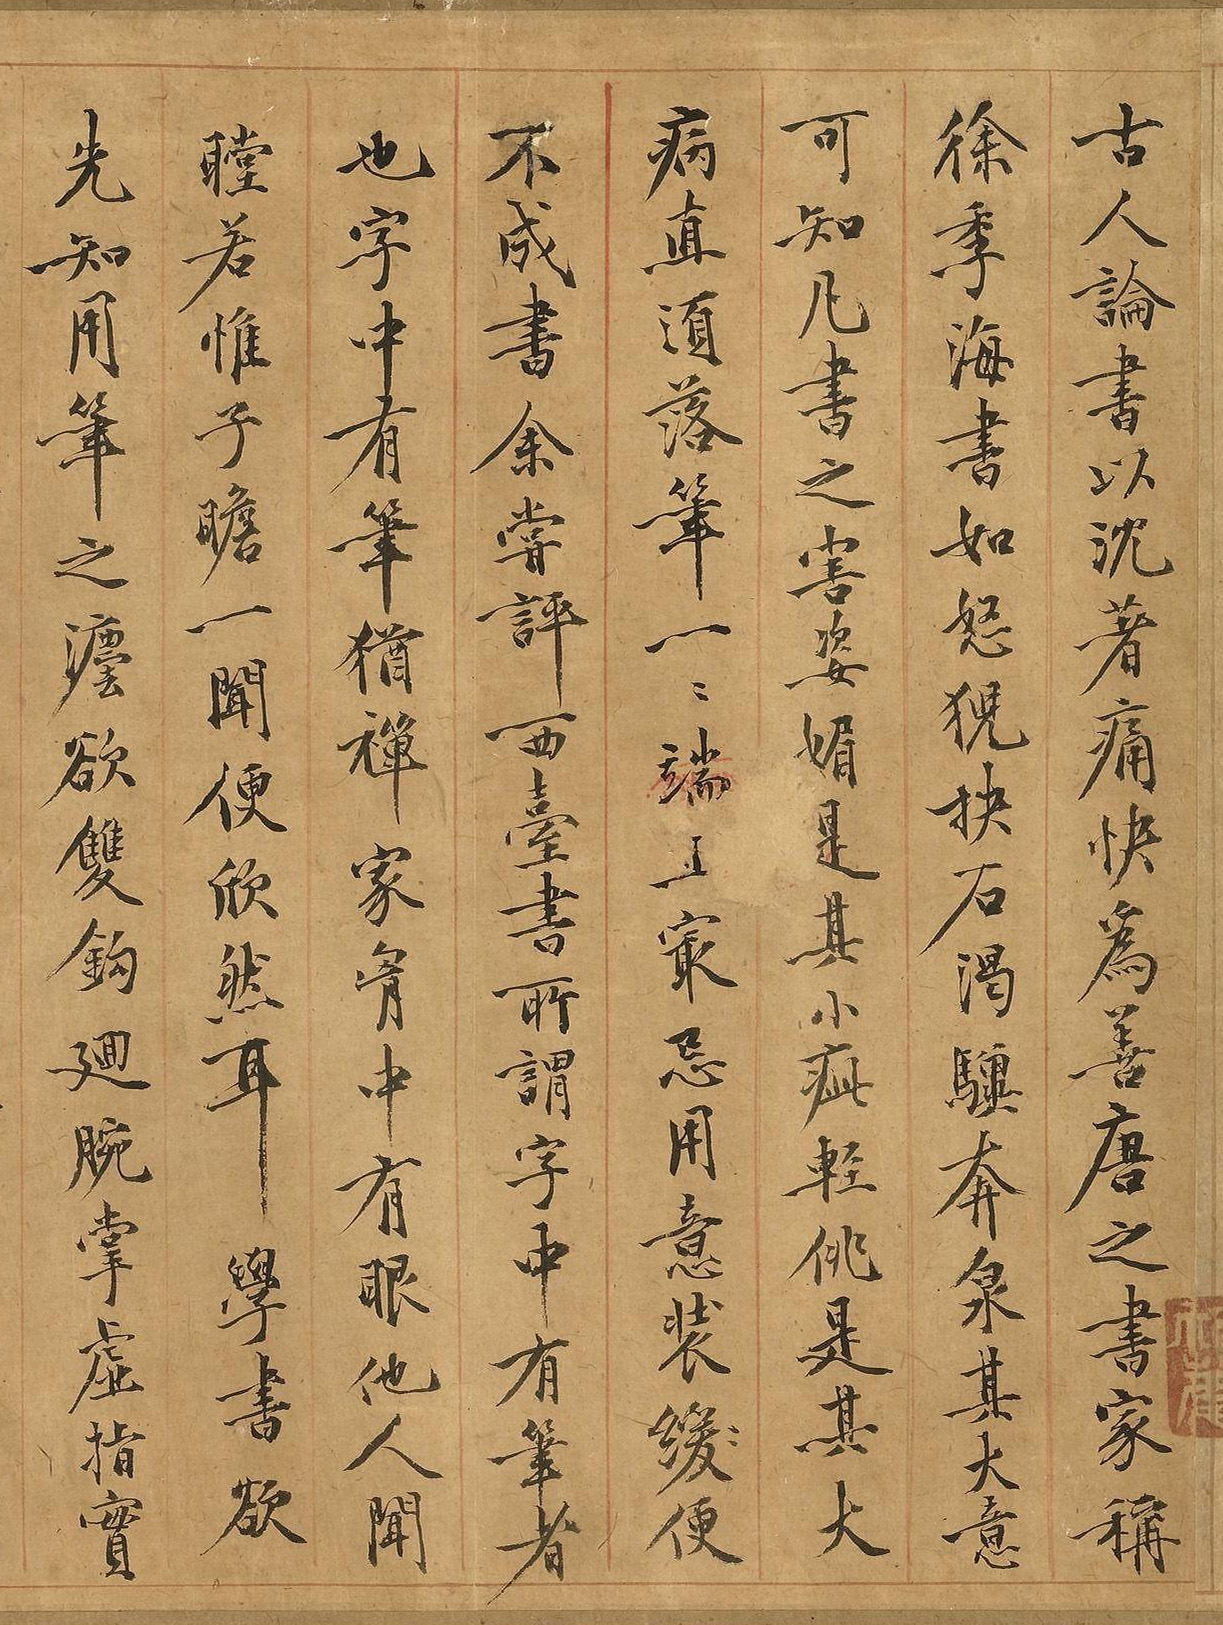 古人論書以沈著痛快為善唐之書家稱
徐季海書如怒猊抉石渴驥奔泉其大意
可知凡書之害姿媚是其小疵輕佻是其大
病直須落筆一〻端正冣忌用意裝綴〻便
不成書余嘗評西臺書所謂字中有筆者
也字中有筆猶禪家胷中有眼他人聞
瞠若惟子瞻一聞便欣然耳學書欲
先知用筆之灋欲雙鉤迴腕掌虛指實